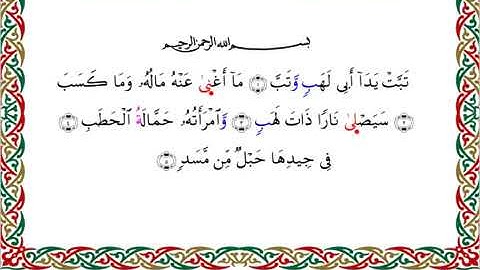 بسم الله الرحمن الرحيم
تَبَّتْ يَدَآ أَبِى لَهَبٍ وَّتَبَّ ۝١ مَآ أَغْنٜىٰ عَنْهُ مَالُهُۥ وَمَا كَسَبَ
۝٢ سَيَصْلٜىٰ نَارًا ذَاتَ لَهَبٍ ۝٣ وَّٱمْرَأَتُهُۥ حَمَّالَةُ ٱلْحَطَبِ ۝٤
فِى جِيدِهَا حَبْلٌ مِّن مَّسَدٍ ۝٥